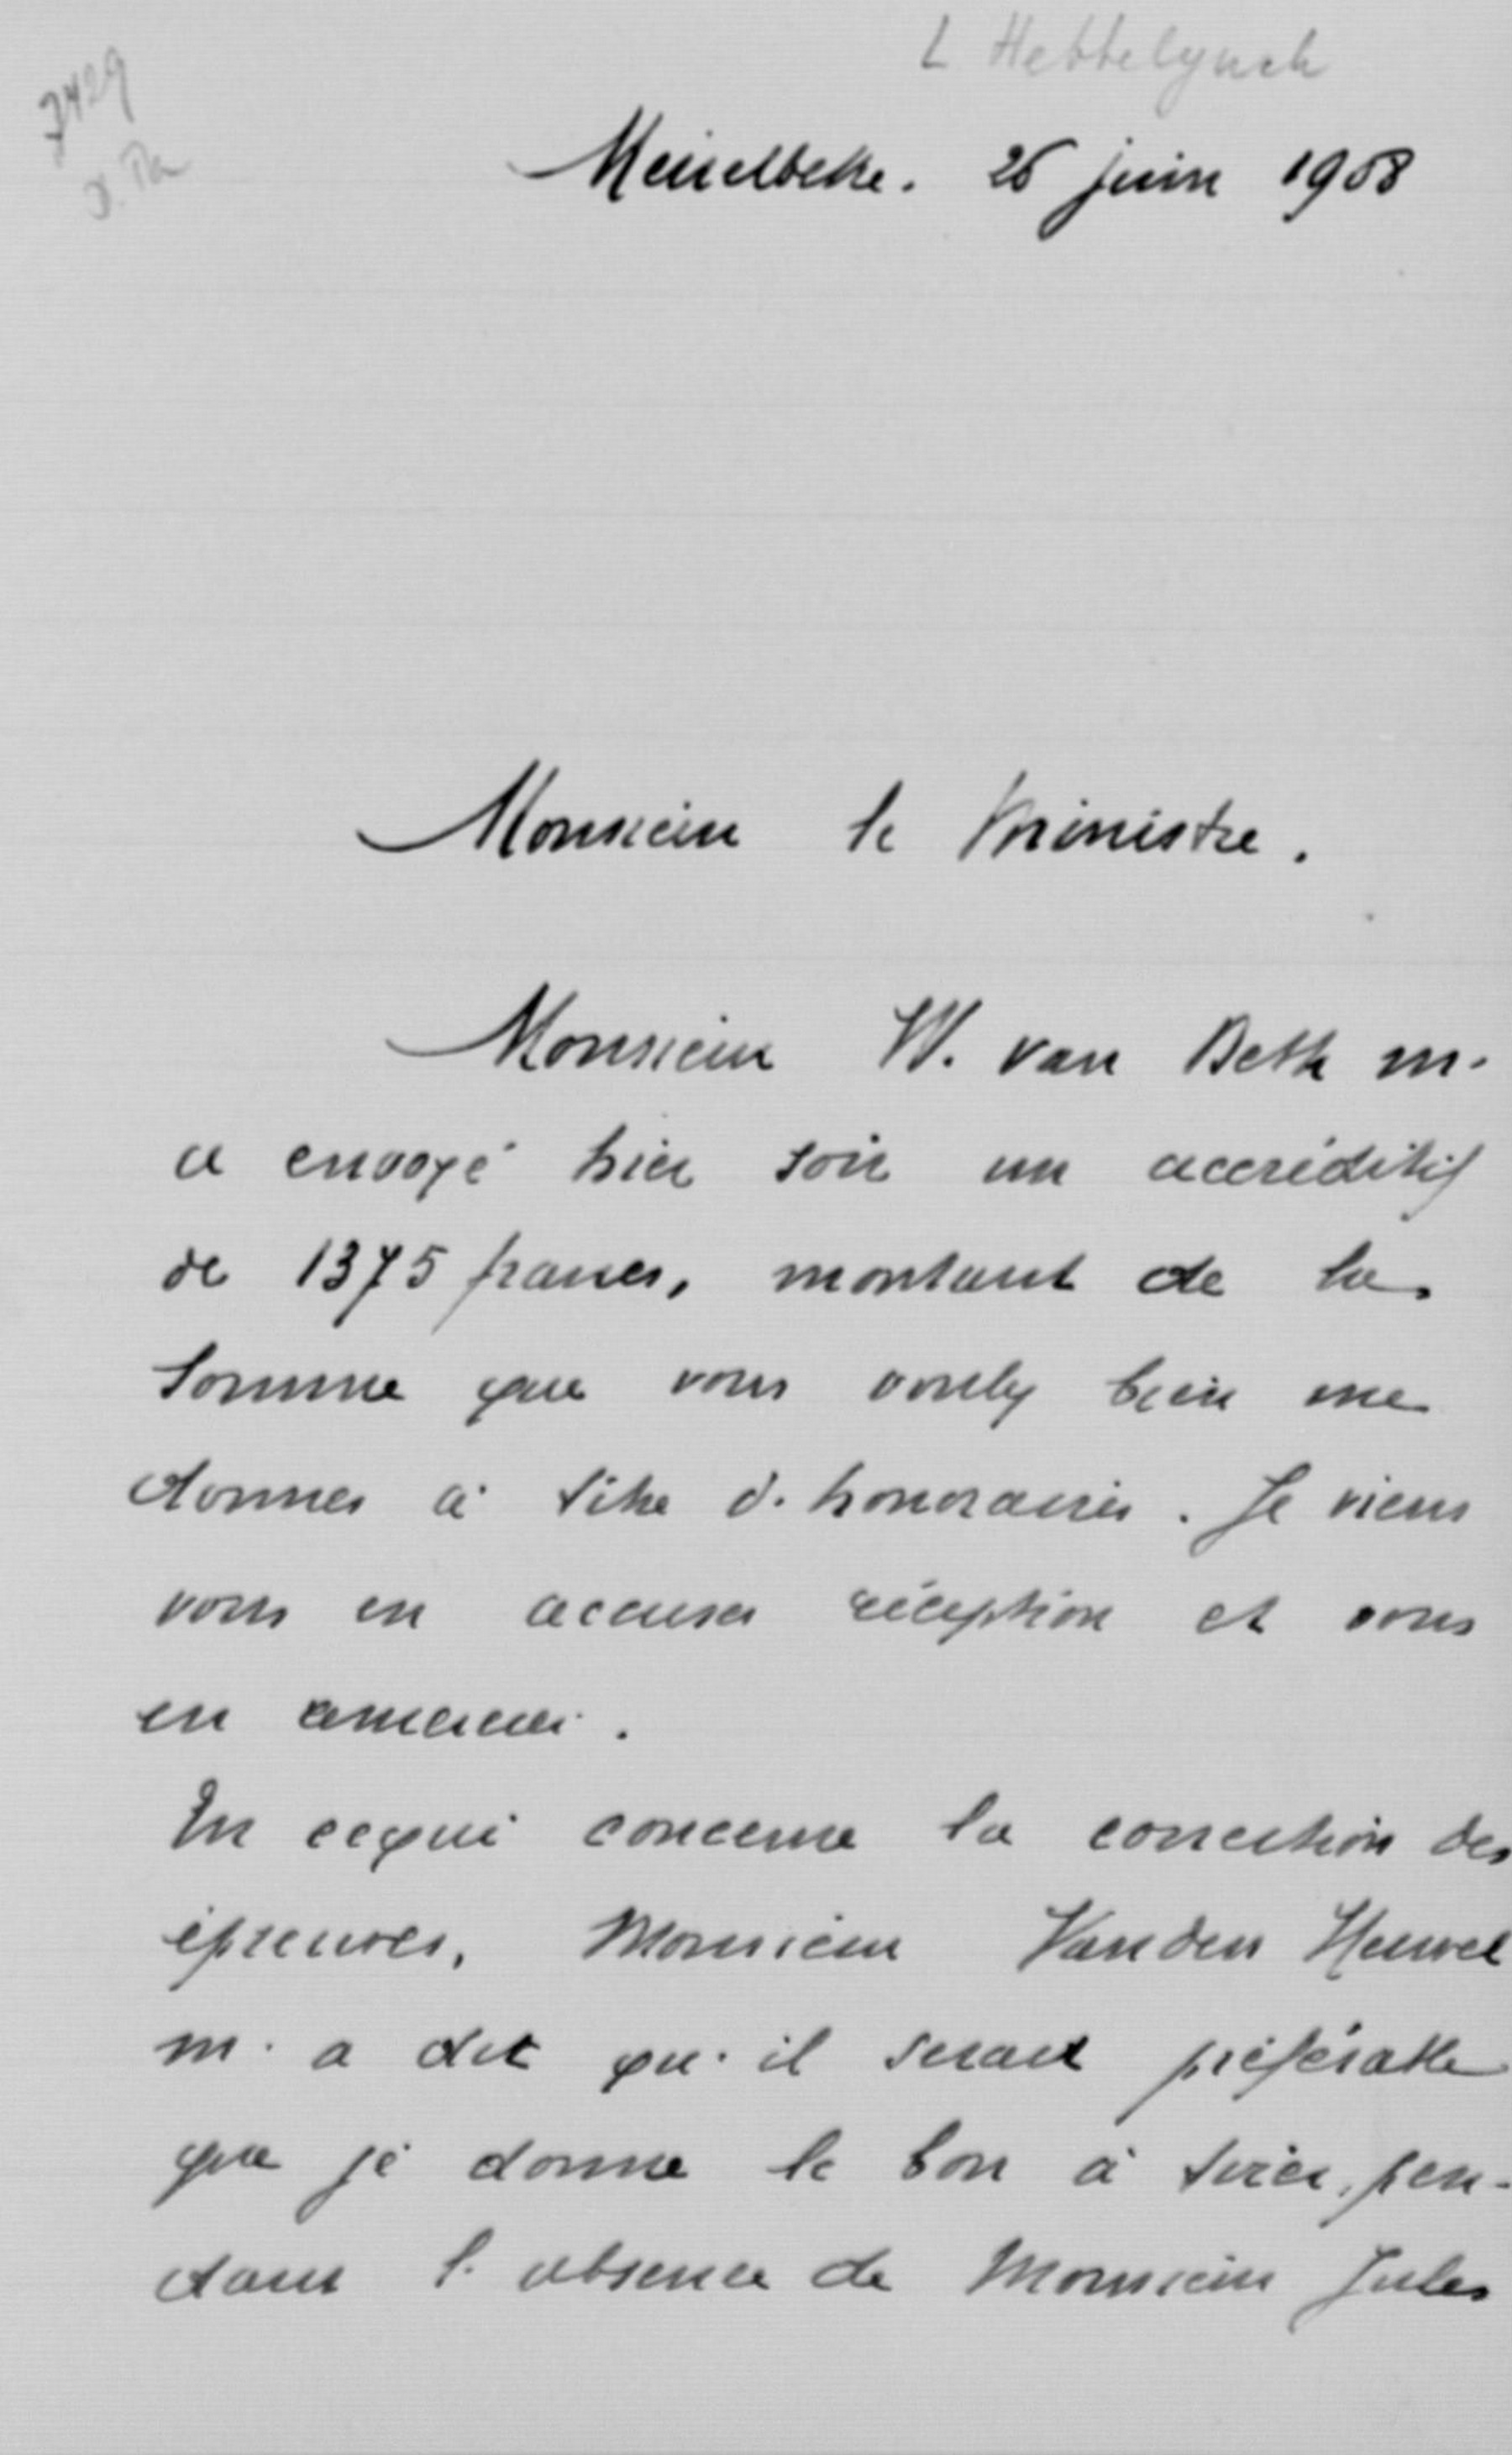 L Hebbelynck
7429
Meirelbeke. 26 juin 1908
Monsieur le Ministre.
Monsieur W. van Beth m'
a envoyé hier soir un accréditif
de 1375 francs, montant de la
somme que vous voulez bien me
donner à titre d'honoraires. Je viens
vous en accuser réception et vous
en remercier.
En ce qui concerne la correction des
épreuves, Monsieur Vanden Heuvel
m'a dit qu'il serait préférable
que je donne le bon à tirer, pen-
dant l'absence de Monsieur Jules